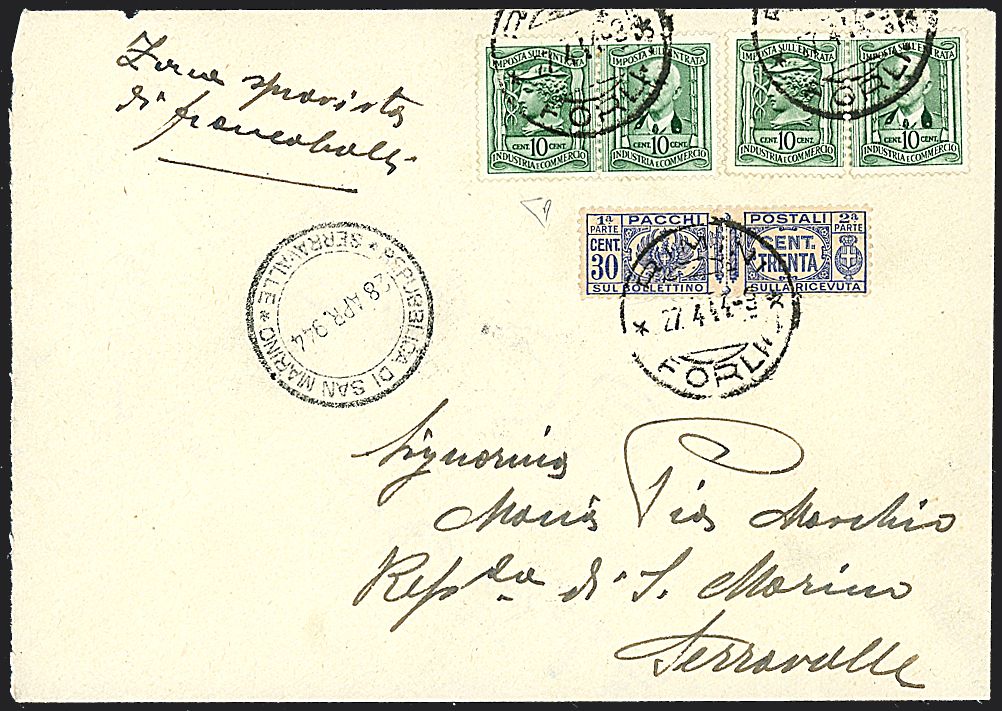 Zona sprovista
di francobolli
IMPOSTA SULL'ENTRATA IMPOSTA SULL'ENTRATA
CENT. 10 CENT. CENT. 10 CENT.
INDUSTRIA E COMMERCIO INDUSTRIA E COMMERCIO
IMPOSTA SULL'ENTRATA IMPOSTA SULL'ENTRATA
CENT. 10 CENT. CENT. 10 CENT.
INDUSTRIA E COMMERCIO INDUSTRIA E COMMERCIO
FORLI
FORLI
1ª PARTE PACCHI POSTALI 2ª PARTE
CENT. 30 CENT. TRENTA
SUL BOLLETTINO SULLA RICEVUTA
* 27.4.44 *
FORLI
REPUBBLICA DI SAN MARINO * SERRAVALLE *
28 APR. 944
Signorina
Maria Pia Marchio
Repda di S. Marino
Serravalle